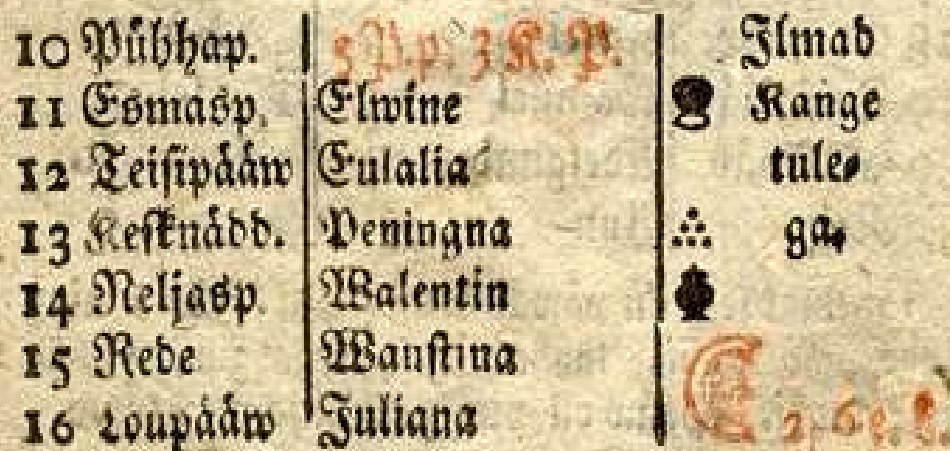 10 Pühhap. 5 P. p. 3 K. P. Ilmad
11 Esmasp. Elwine Kange
12 Teisipääw Eulalia tule⸗
13 Kesknädd. Peningna ga,
14 Neljasp. Walentin
15 Rede Wanstina
16 Loupääw Juliana 2, 6 e. L.